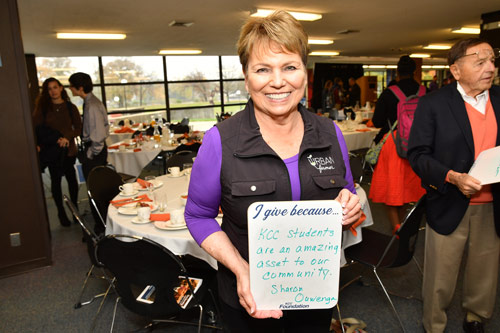 URBAN
farmer
I give because...
KCC students
are an amazing
asset to our
community.
Sharon
Ouwenga
KCC
Foundation